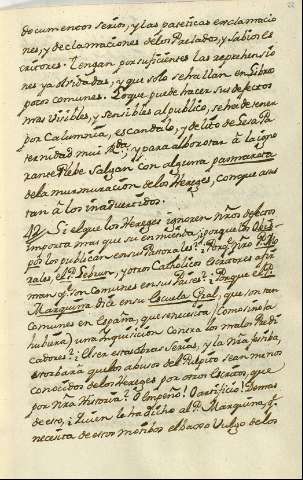 documentos serios, y las pateticas exclamacio
nes, y declamaciones de los Prelados, y sabios es
critores. Tengan por suficientes las reprehensio
nes ya olvidadas, y que solo se hallan en libros
poco comunes. Lo que puede hacer sus defectos
mas visibles, y sensibles al publico, se ha de tener
por calumnia, escandalo, y delito de lesa Pa
ternidad mui Rda; y para alborotar à la igno
rante Plebe salgan con alguna pamarota
de la murmuracion de los Hereges, conque asus
tan à los inadvertidos.
42 Si el que los Hereges ignoren nros defectos
importa mas que su enmienda; porque los Obis
pos los publican en sus Pastorales?
rales, el P. Lebrun, y otros Catholicos Escritores afir
man q. son comunes en sus Paises? Porque el P.
Marquina dice en su Escuela Gral, que son tan
comunes en España, que se necesita (como si no la
hubiera) una Inquisicion contra los malos Predi
cadores? El ser estas obras serias, y la nra jocosa,
estorbarà que los abusos del Pulpito sean menos
conocidos de los Hereges por otros Escritos, que
por nra Historia? O empeño! O artificio! Demas
de esto, Quien le ha dicho al P. Marquina, q.
necesita de estos membros el baxo vulgo de los